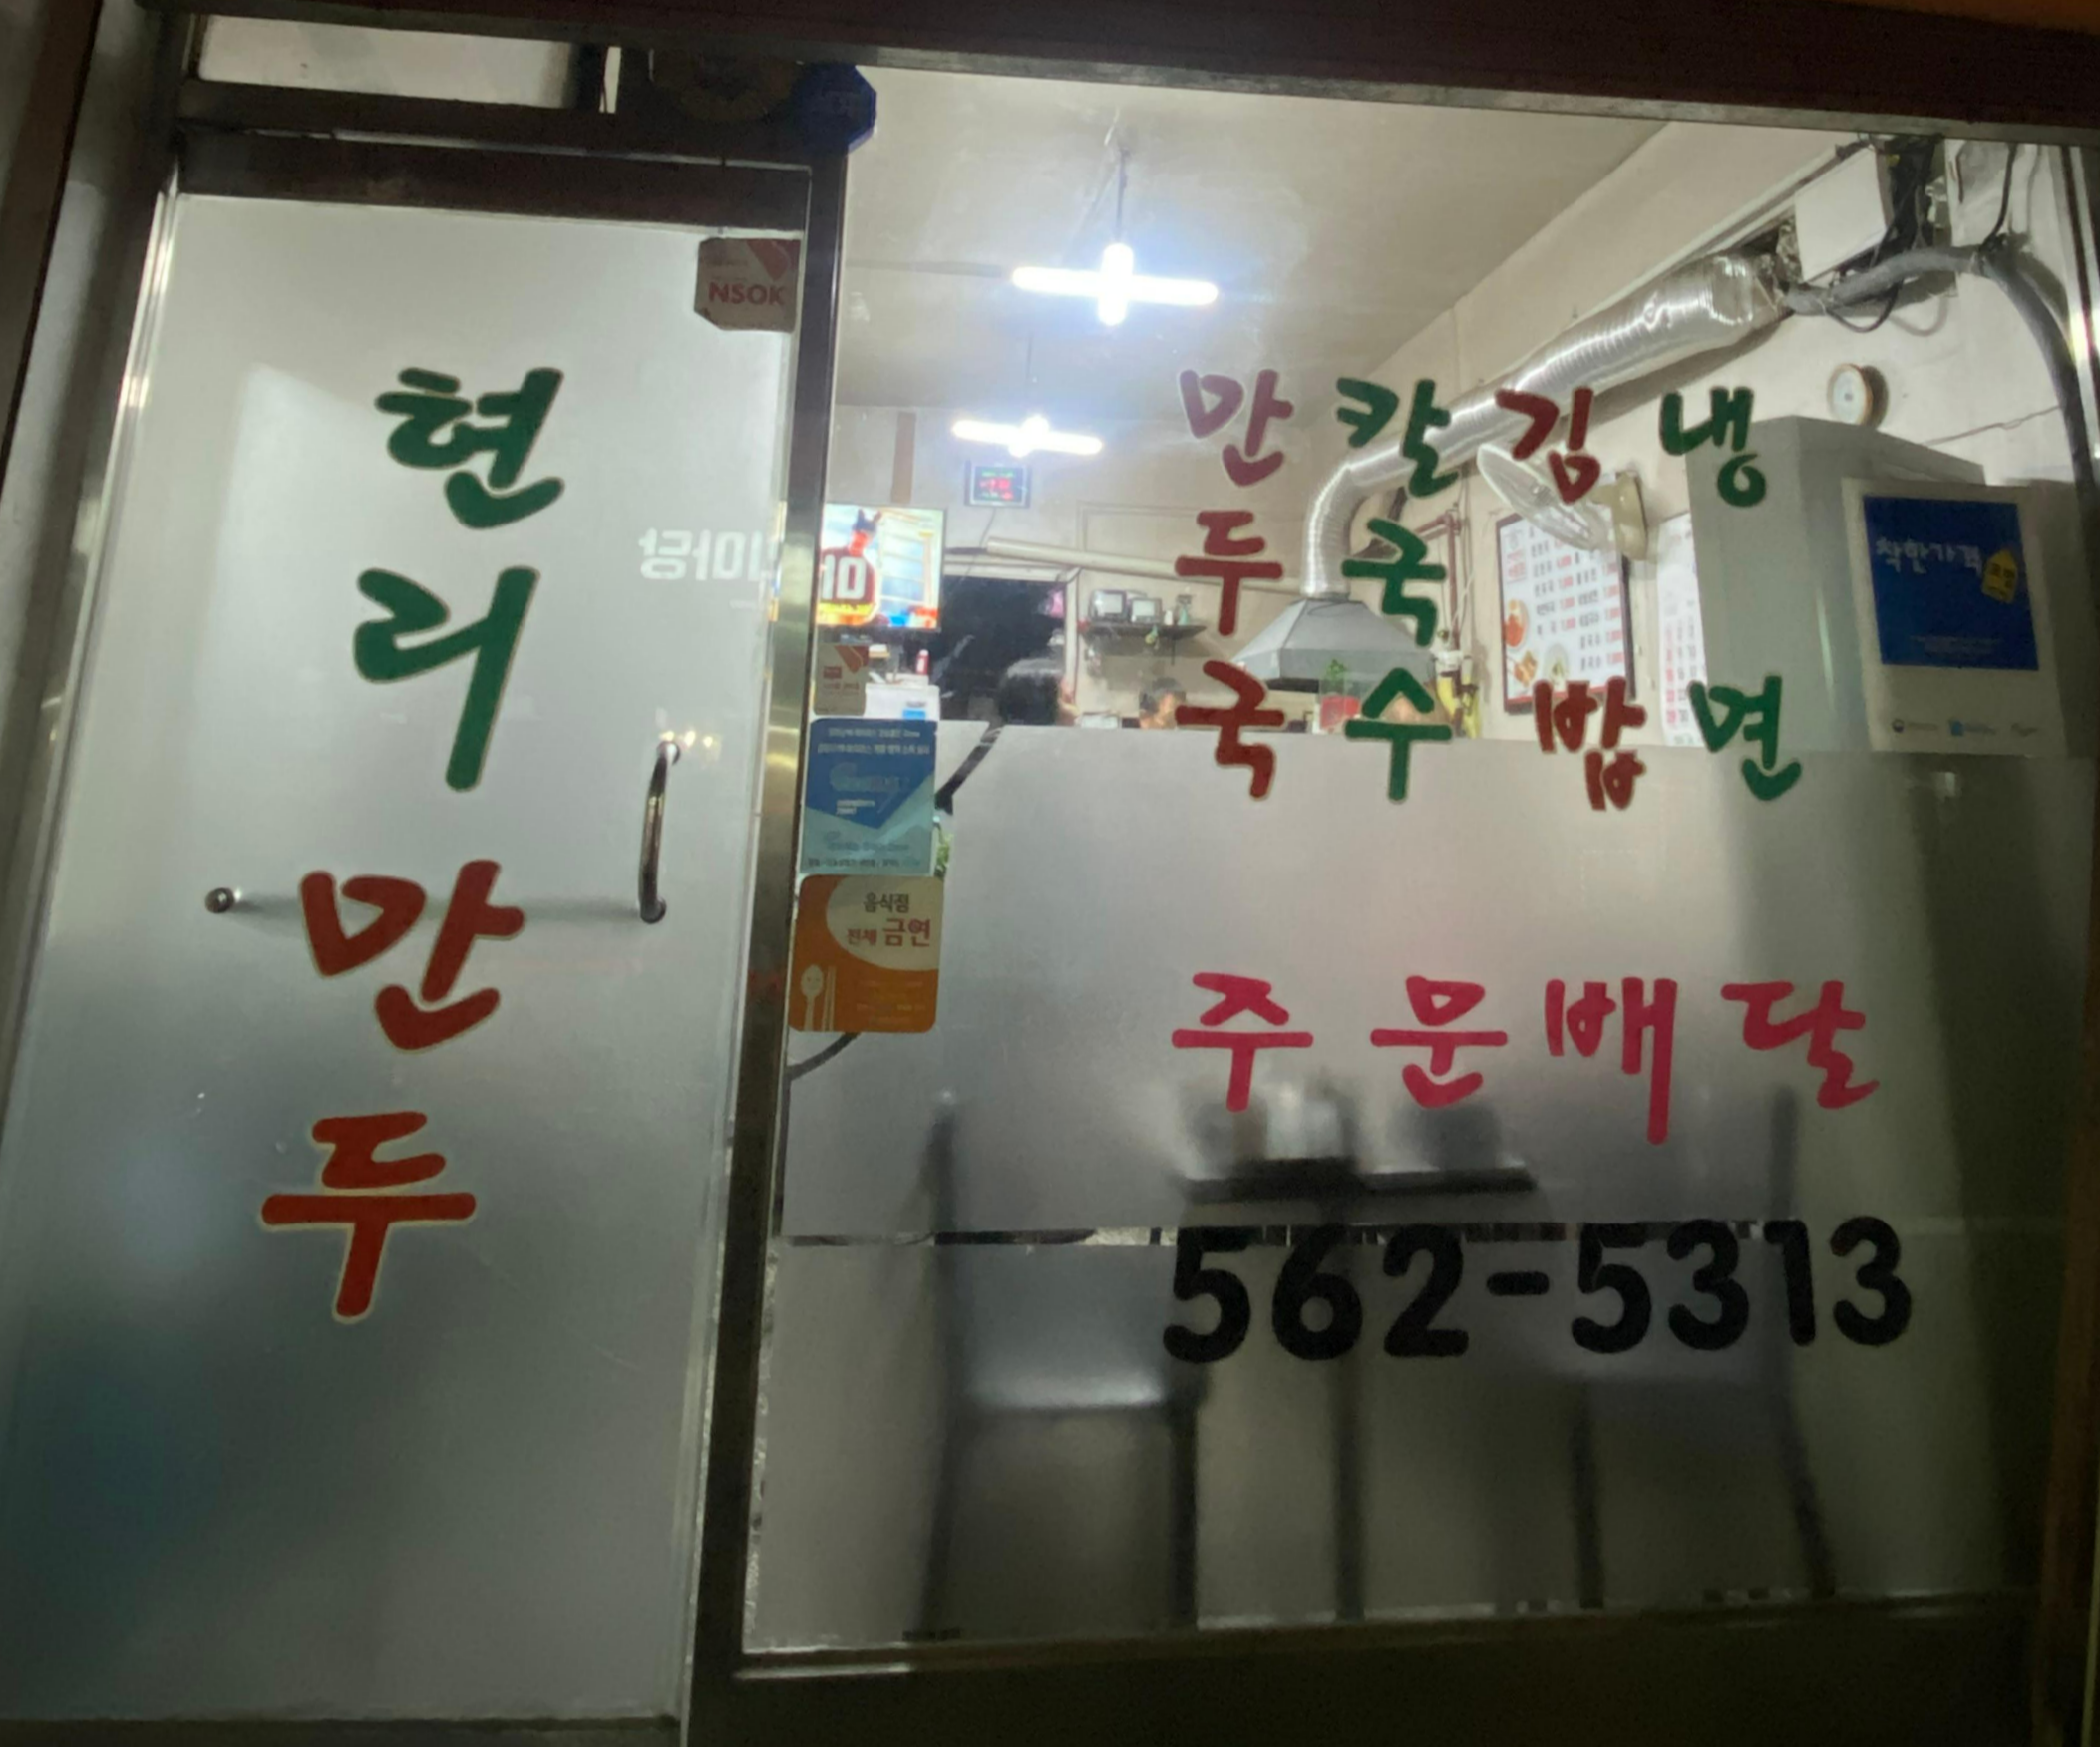 현리만두
NSOK
만두국
칼국수
김밥
냉면
착한가격
음식점
전체 금연
주문배달
562-5313